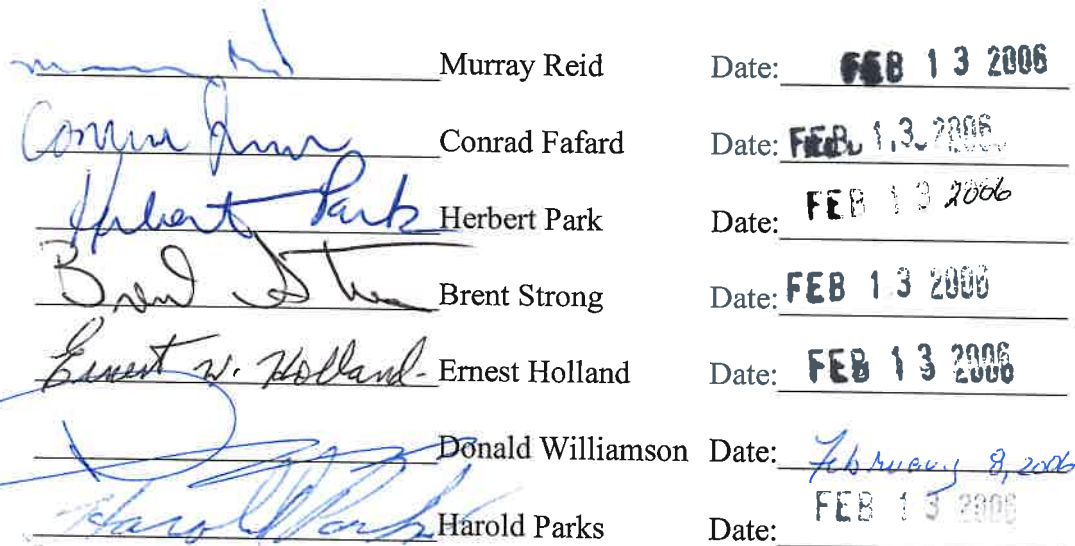 Murray Reid Date: FEB 13 2006
Conrad Fafard Date: FEB. 13. 2006
Herbert Park Herbert Park Date: FEB 13 2006
Brent Brent Strong Date: FEB 13 2006
Ernest W. Holland Ernest Holland Date: FEB 13 2006
Donald Williamson Date: February 8, 2006
Harold Parks Harold Parks Date: FEB 13 2006